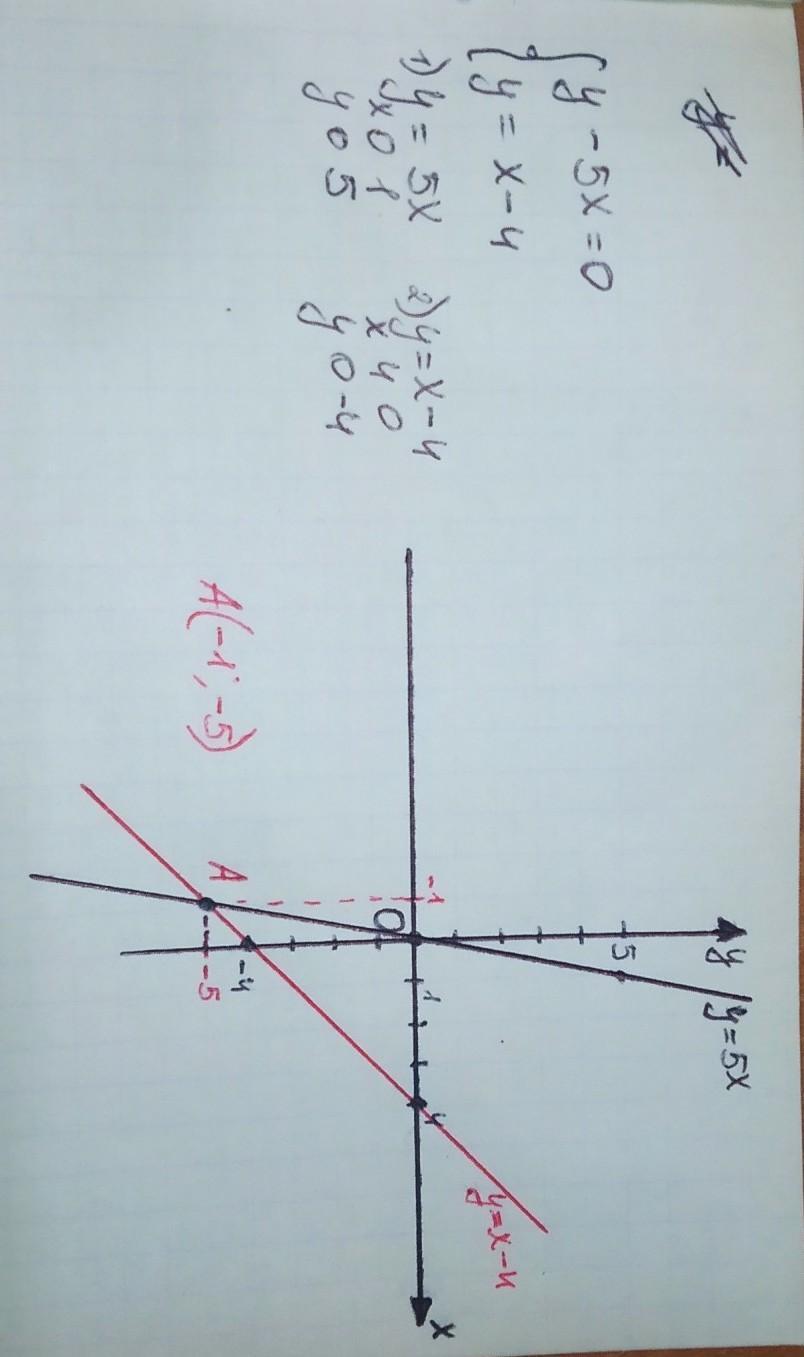 y - 5x = 0
y = x - 4
1) y = 5x
x 0 1
y 0 5
2) y = x - 4
x 4 0
y 0 -4
A(-1; -5)
y
y = 5x
5
-1
O
1
4
x
y = x - 4
A
-4
-5